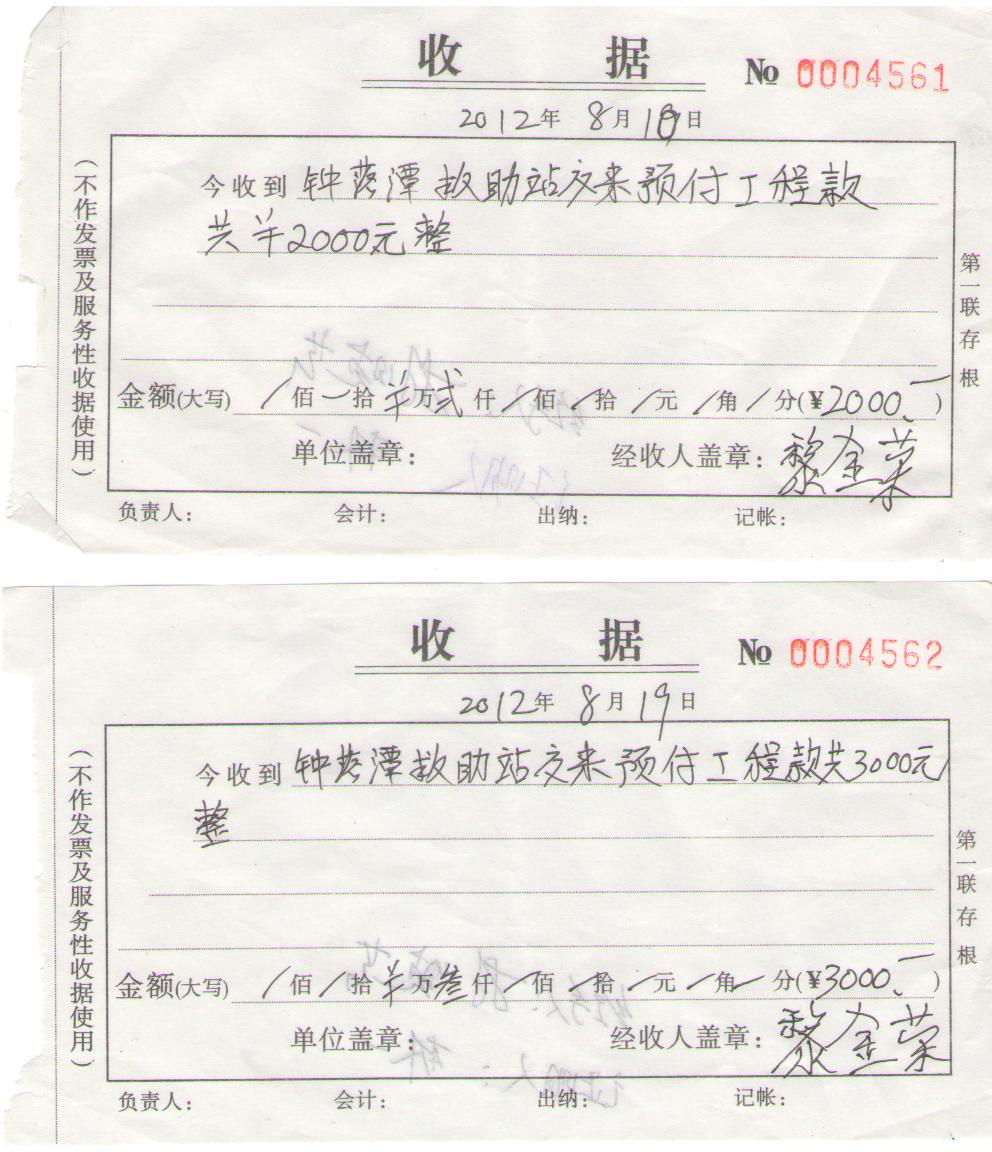 收 据 № 0004561
2012年 8月 18日
今收到 钟落潭救助站交来预付工程款
共￥2000元整
金额(大写) /佰 一拾 ￥万 贰仟 /佰 /拾 /元 /角 /分(¥2000.一)
单位盖章: 经收人盖章: 黎金荣
负责人: 会计: 出纳: 记帐:
(不作发票及服务性收据使用)
第一联 存根
收 据 № 0004562
2012年 8月 19日
今收到 钟落潭救助站交来预付工程款共3000元
整
金额(大写) /佰 /拾 ￥万 叁仟 /佰 /拾 /元 /角 /分(¥3000.一)
单位盖章: 经收人盖章: 黎金荣
负责人: 会计: 出纳: 记帐:
(不作发票及服务性收据使用)
第一联 存根